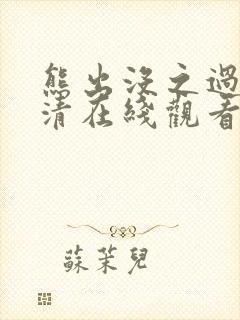 熊出没之過
清在綫觀看
蘇茉兒